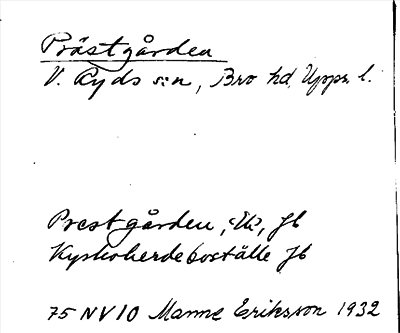 Prästgården
V. Ryds s:n, Bro hd, Upps. l.
Prestgården, Jb
Kyrkoherdeboställe Jb
75 NV 10 Manne Eriksson 1932